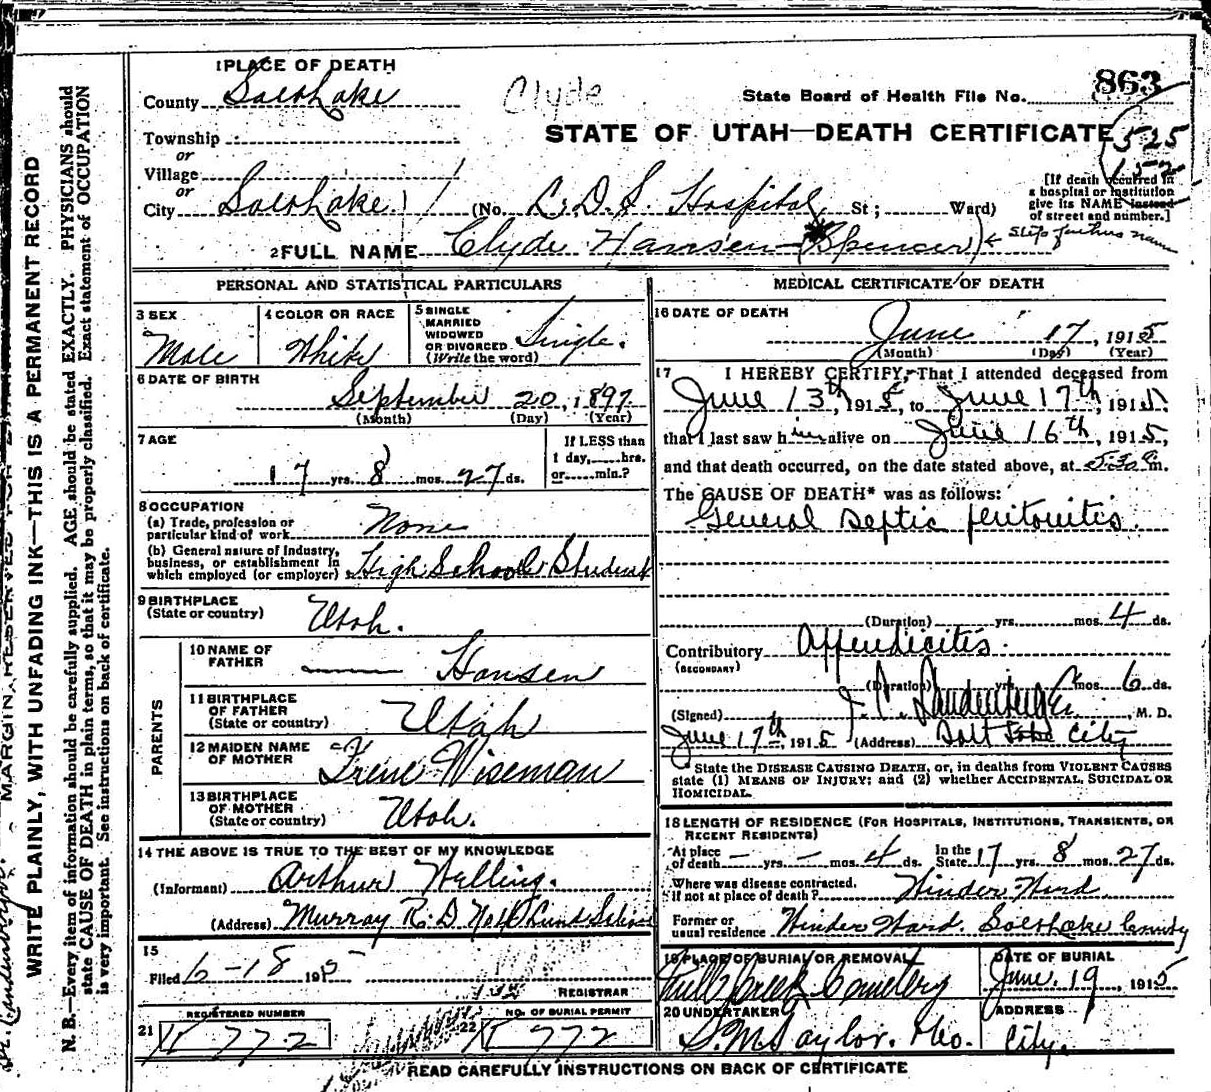 1 PLACE OF DEATH
County Salt Lake
Clyde
State Board of Health File No. 863
Township
or
Village
or
City Salt Lake
STATE OF UTAH—DEATH CERTIFICATE
525
152
(No. L.D.S. Hospital St; Ward)
[If death occurred in
a hospital or institution
give its NAME instead
of street and number.]
2 FULL NAME Clyde Hansen (Spencer)
PERSONAL AND STATISTICAL PARTICULARS
3 SEX
Male
4 COLOR OR RACE
White
5 SINGLE
MARRIED
WIDOWED
OR DIVORCED
(Write the word)
Single.
6 DATE OF BIRTH
September 20, 1897
(Month) (Day) (Year)
7 AGE
17 yrs. 8 mos. 27 ds.
If LESS than
1 day, hrs.
or min.?
8 OCCUPATION
(a) Trade, profession or
particular kind of work None
(b) General nature of Industry,
business, or establishment in
which employed (or employer) High School Student
9 BIRTHPLACE
(State or country)
Utah.
PARENTS
10 NAME OF
FATHER
— Hansen
11 BIRTHPLACE
OF FATHER
(State or country)
Utah
12 MAIDEN NAME
OF MOTHER
Irene Wiseman
13 BIRTHPLACE
OF MOTHER
(State or country)
Utah.
14 THE ABOVE IS TRUE TO THE BEST OF MY KNOWLEDGE
(Informant) Arthur Welling.
(Address) Murray R.D.
15
Filed 6-18 1915
REGISTRAR
REGISTERED NUMBER
21 772
NO. OF BURIAL PERMIT
22 772
MEDICAL CERTIFICATE OF DEATH
16 DATE OF DEATH
June 17, 1915
(Month) (Day) (Year)
17 I HEREBY CERTIFY, That I attended deceased from
June 13th, 1915, to June 17th, 1915,
that I last saw him alive on June 16th, 1915,
and that death occurred, on the date stated above, at 5:30 a m.
The CAUSE OF DEATH* was as follows:
General septic peritonitis.
(Duration) yrs. mos. 4 ds.
Contributory Appendicitis.
(SECONDARY)
(Duration) mos. 6 ds.
(Signed) M. D.
June 17th, 1915 (Address) Salt Lake City
State the DISEASE CAUSING DEATH, or, in deaths from VIOLENT CAUSES
state (1) MEANS OF INJURY; and (2) whether ACCIDENTAL, SUICIDAL OR
HOMICIDAL.
18 LENGTH OF RESIDENCE (FOR HOSPITALS, INSTITUTIONS, TRANSIENTS, OR
RECENT RESIDENTS)
At place
of death — yrs. — mos. 4 ds.
In the
State 17 yrs. 8 mos. 27 ds.
Where was disease contracted,
if not at place of death? Winder Ward
Former or
usual residence Winder Ward. Salt Lake County
19 PLACE OF BURIAL OR REMOVAL
Mill Creek Cemetery
DATE OF BURIAL
June. 19, 1915
20 UNDERTAKER
S. M. Taylor. & Co.
ADDRESS
City.
READ CAREFULLY INSTRUCTIONS ON BACK OF CERTIFICATE
WRITE PLAINLY, WITH UNFADING INK—THIS IS A PERMANENT RECORD
N. B.—Every item of information should be carefully supplied. AGE should be stated EXACTLY. PHYSICIANS should
state CAUSE OF DEATH in plain terms, so that it may be properly classified. Exact statement of OCCUPATION
is very important. See instructions on back of certificate.